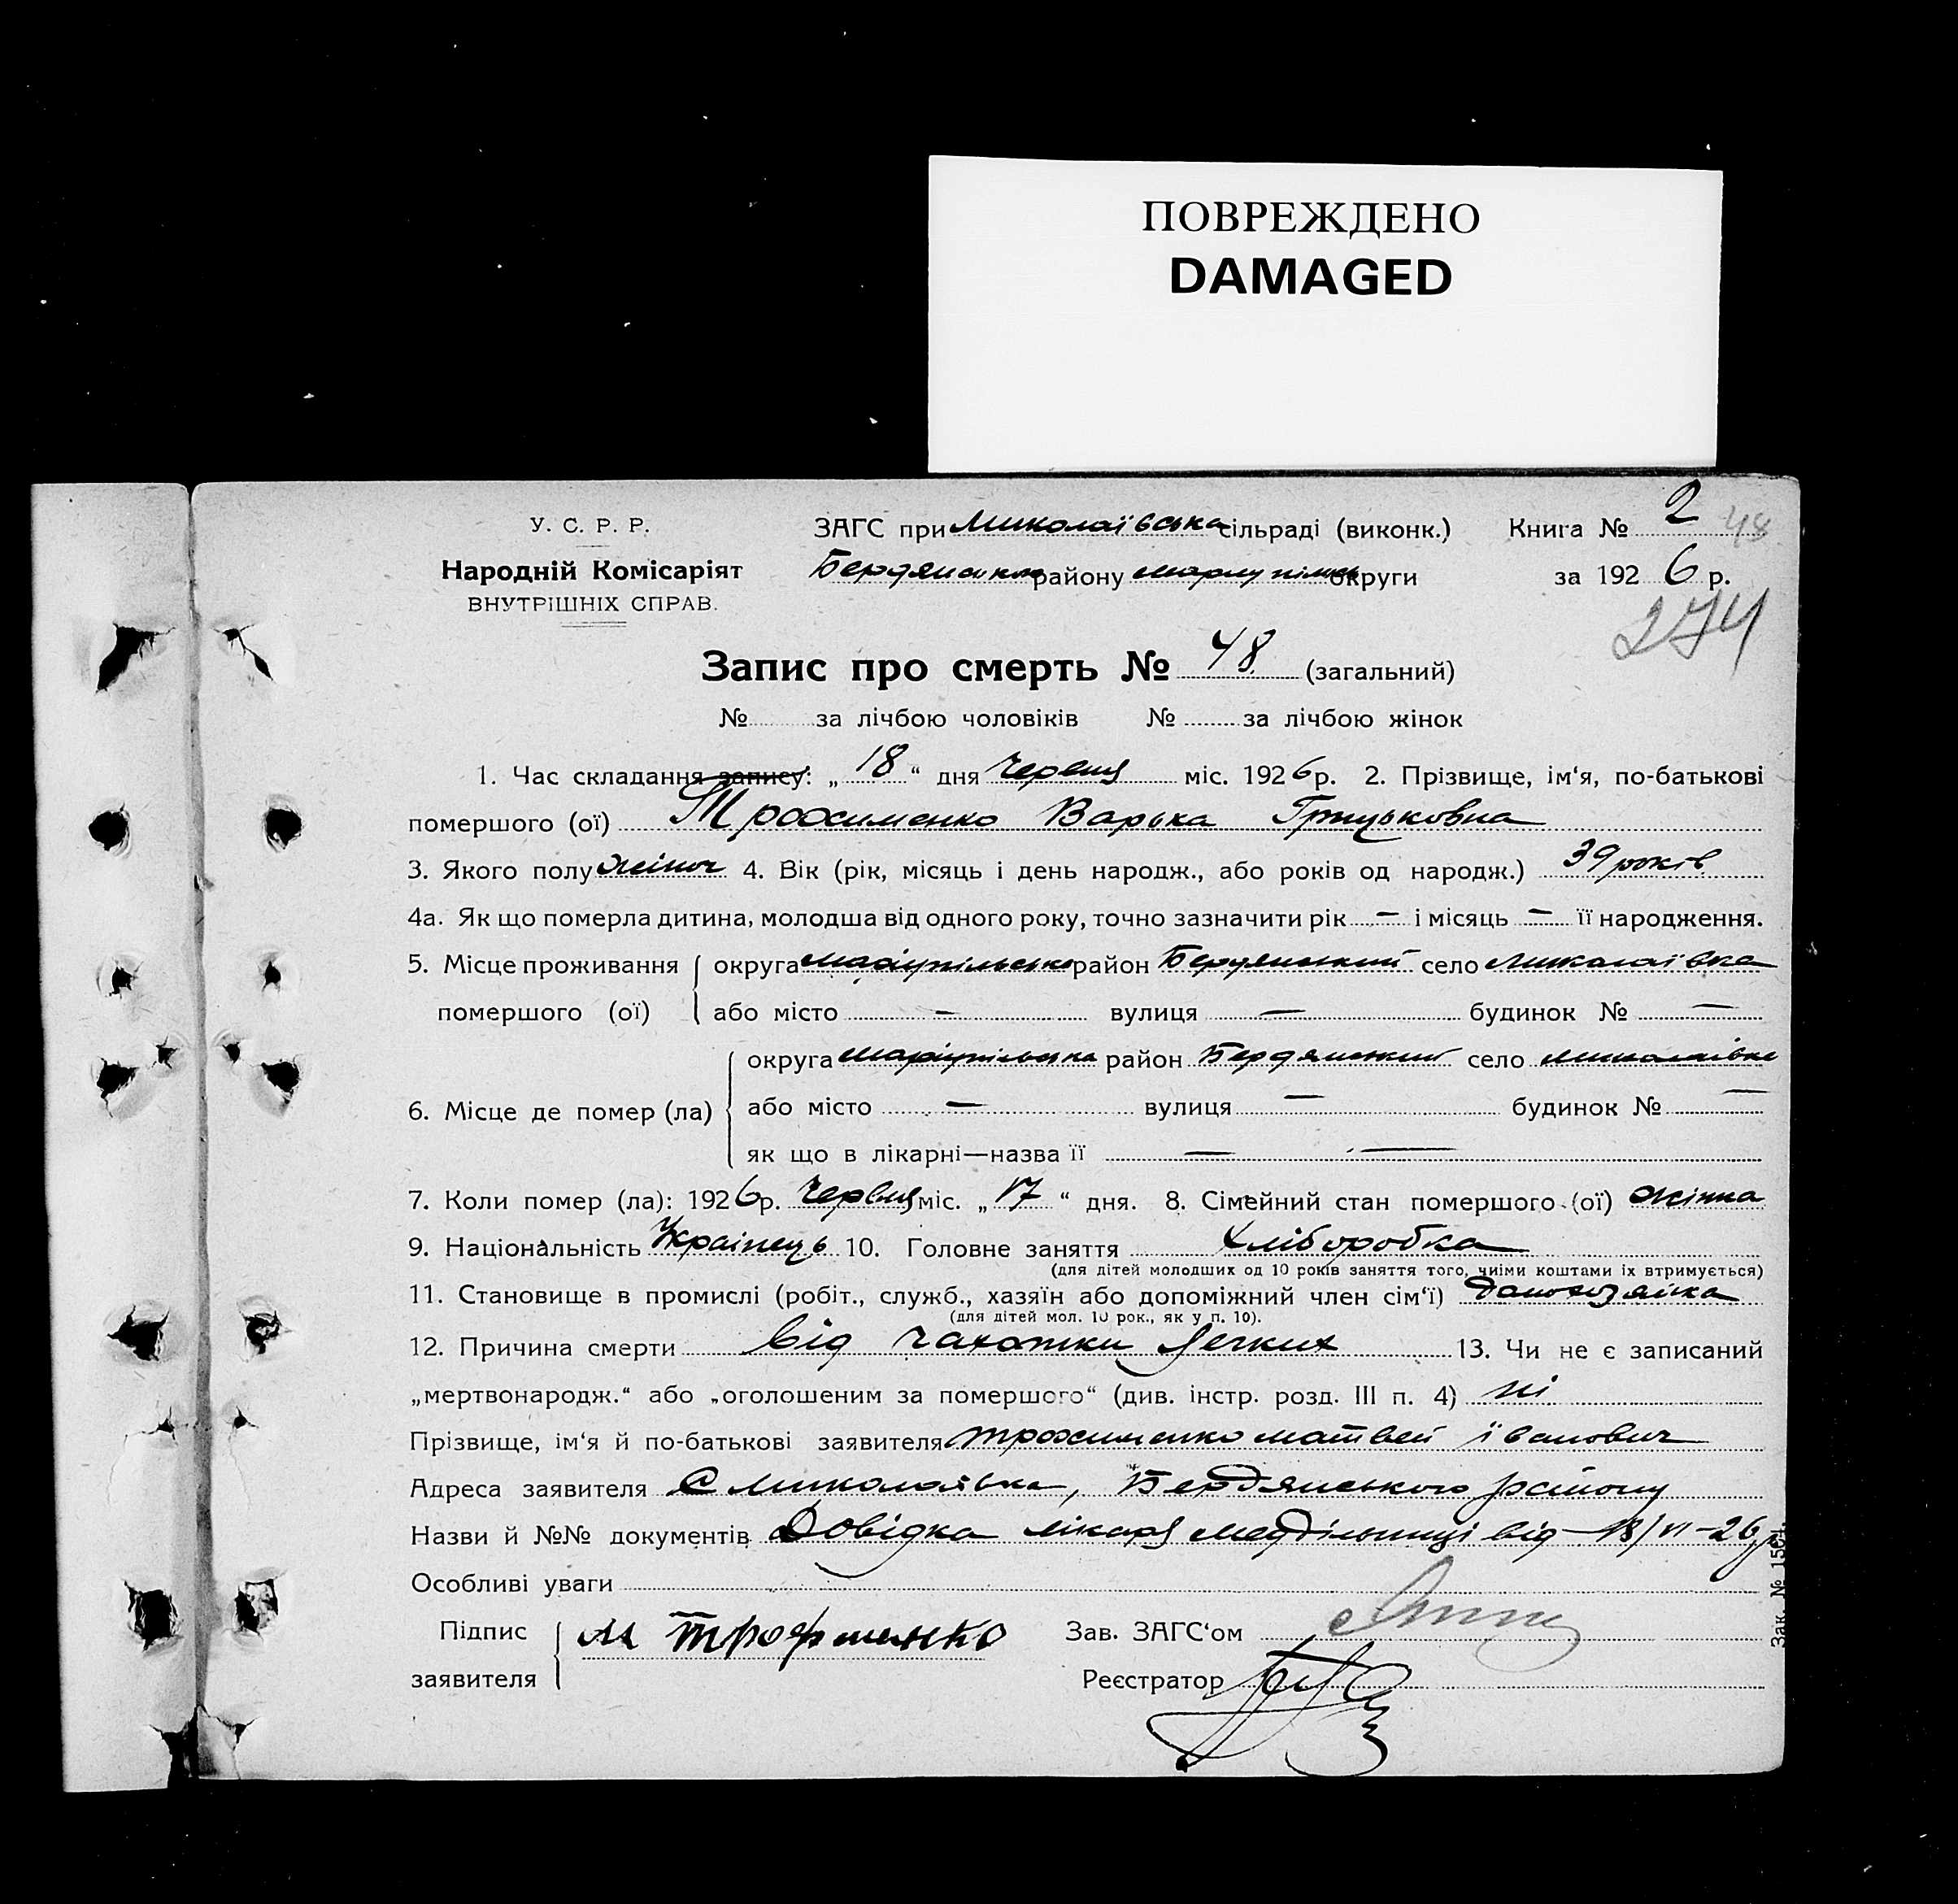 ПОВРЕЖДЕНО
DAMAGED
У. С. Р. Р.
Народній Комісаріят
ВНУТРІШНІХ СПРАВ.
ЗАГС при Миколаївська сільраді (виконк.) Книга № 2 48
району округи за 1926 р.
274
Запис про смерть № 48. (загальний)
№ за лічбою чоловіків № за лічбою жінок
1. Час складання запису: „18“ дня червця міс. 1926 р. 2. Прізвище, ім‘я, по-батькові
помершого (ої) Трохименко Варька Грицьковна
3. Якого полу жіноч 4. Вік (рік, місяць і день народж., або років од народж.) 39 років
4а. Як що померла дитина, молодша від одного року, точно зазначити рік — і місяць — її народження.
5. Місце проживання округа маріупільська район Бердянський село Миколаївка
помершого (ої) або місто — вулиця — будинок № —
округа маріупільська район Бердянський село миколаївка
6. Місце де помер (ла) або місто — вулиця — будинок № —
як що в лікарні—назва її — —
7. Коли помер (ла): 1926 р. червця міс. „17“ дня. 8. Сімейний стан помершого (ої) жінка
9. Національність Украінець 10. Головне заняття Хліборобка
(для дітей молодших од 10 років заняття того, чиїми коштами їх втримується)
11. Становище в промислі (робіт., служб., хазяїн або допоміжний член сім‘ї)
(для дітей мол. 10 рок., як у п. 10).
12. Причина смерти від чахотки легких 13. Чи не є записаний
„мертвонародж.“ або „оголошеним за помершого“ (див. інстр. розд. III п. 4) ні
Прізвище, ім‘я й по-батькові заявителя трохименко матвей іванович
Адреса заявителя С Миколаївка, Бердянського району
Назви й №№ документів Довідка лікаря меддільниці від 18/VI-26 р
Особливі уваги
Підпис М Трофименко Зав. ЗАГС‘ом
заявителя Реєстратор
Зак. № 1504.